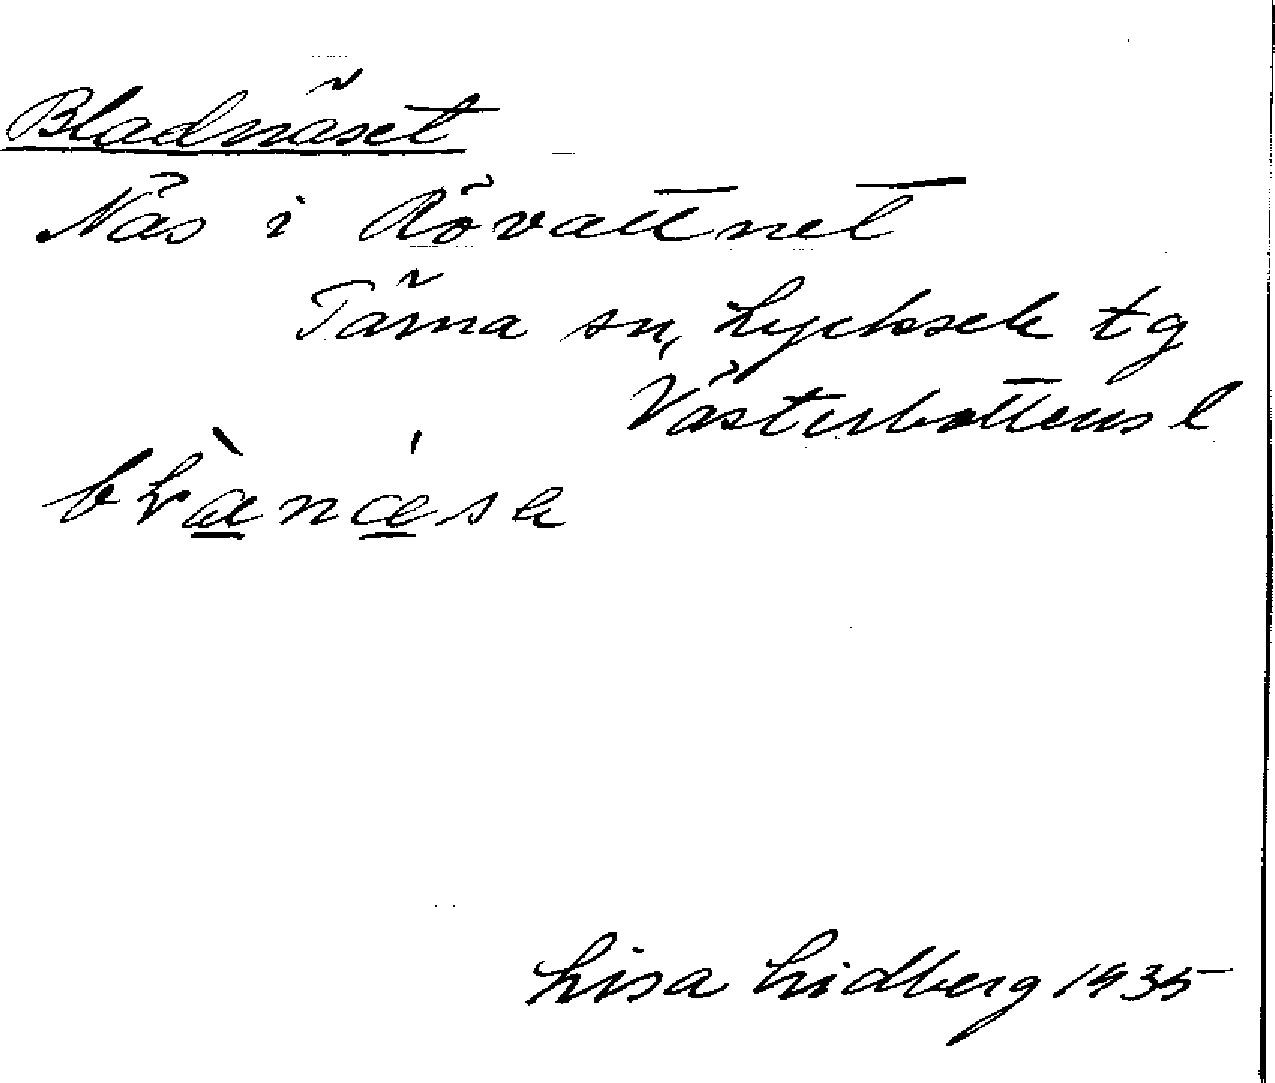 Bladnäset
Näs i Rövattnet
Tärna sn, Lycksele tg
Västerbottens l
Lisa Lidberg 1935